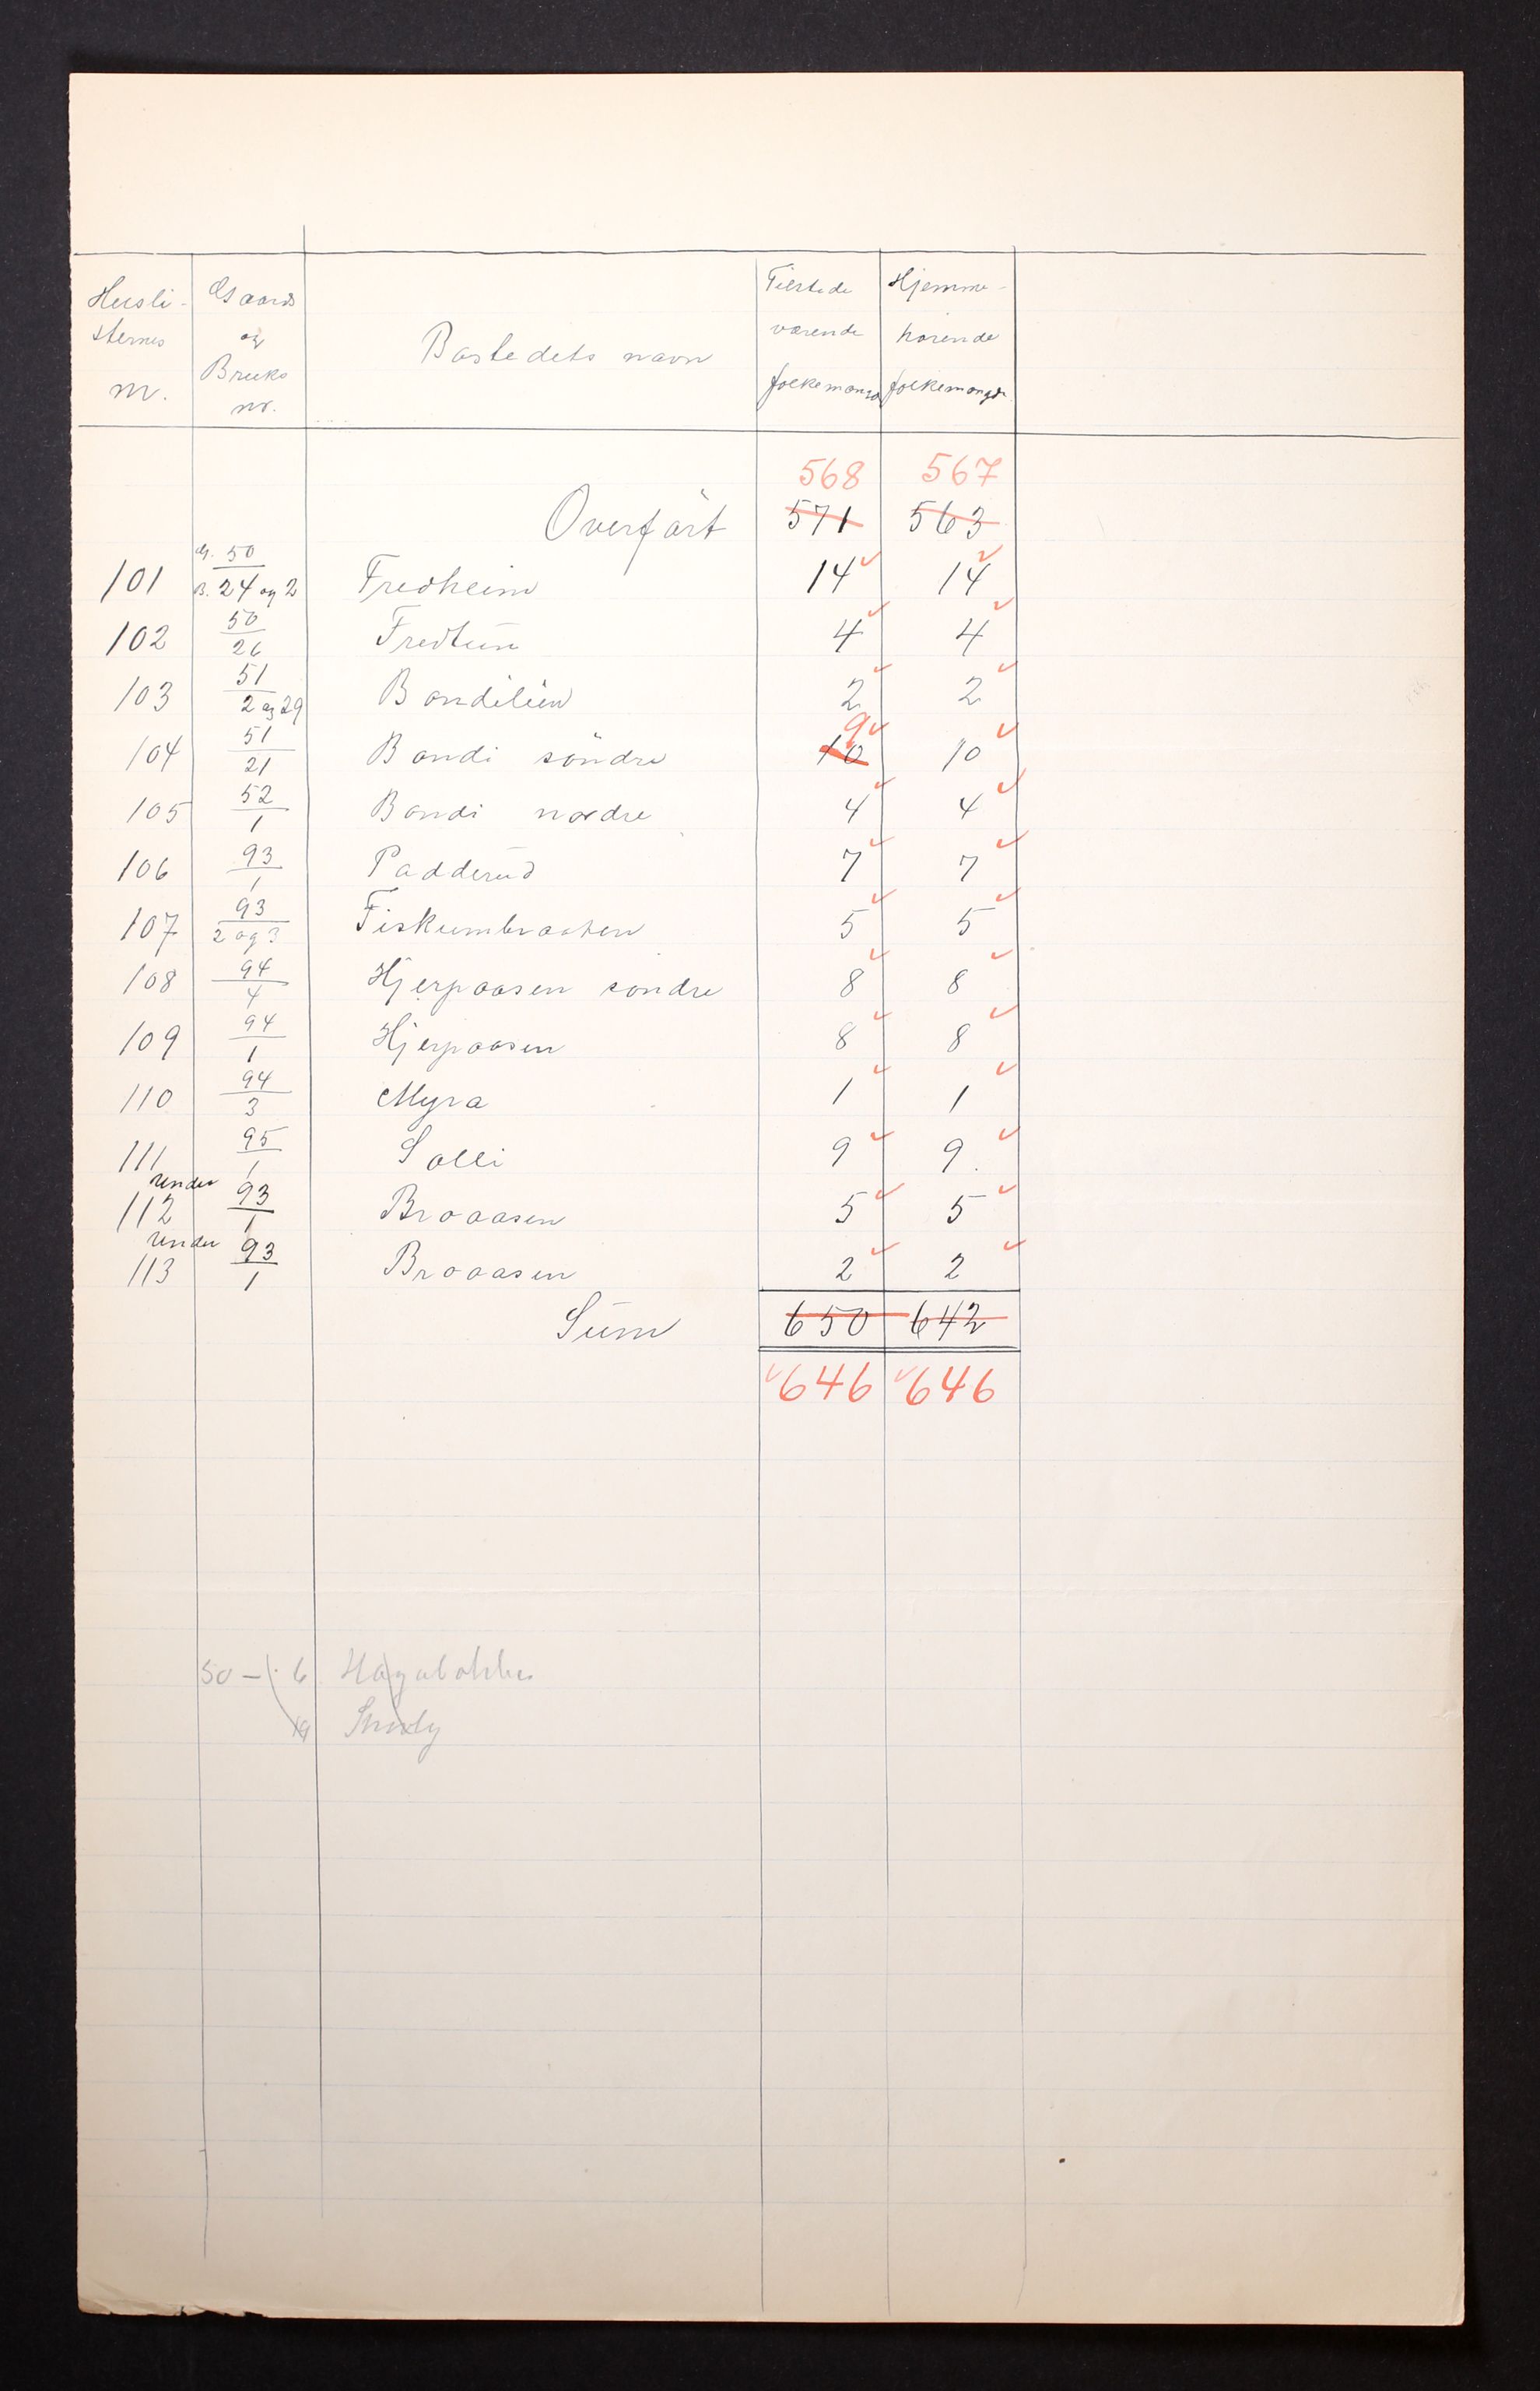 Husli- Gaards Tilstede Hjemme-
sternes og Bostedets navn værende hørende
nr. Bruks folkemængde folkemængde
nr.
568 567
Overført 571 563
101 G. 50 B. 24 og 2 Fredheim 14 14
102 50/26 Fredtun 4 4
103 51/2 og 29 Bondilien 2 2
104 51/21 Bondi söndre 10 9 10
105 52/1 Bondi nordre 4 4
106 93/1 Padderud 7 7
107 93/2 og 3 Fiskumbraaten 5 5
108 94/4 Hjerpaasen söndre 8 8
109 94/1 Hjerpaasen 8 8
110 94/3 Myra 1 1
111 95/1 Solli 9 9
112 under 93/1 Broaasen 5 5
113 under 93/1 Broaasen 2 2
Sum 650 642
646 646
50 - 6
19